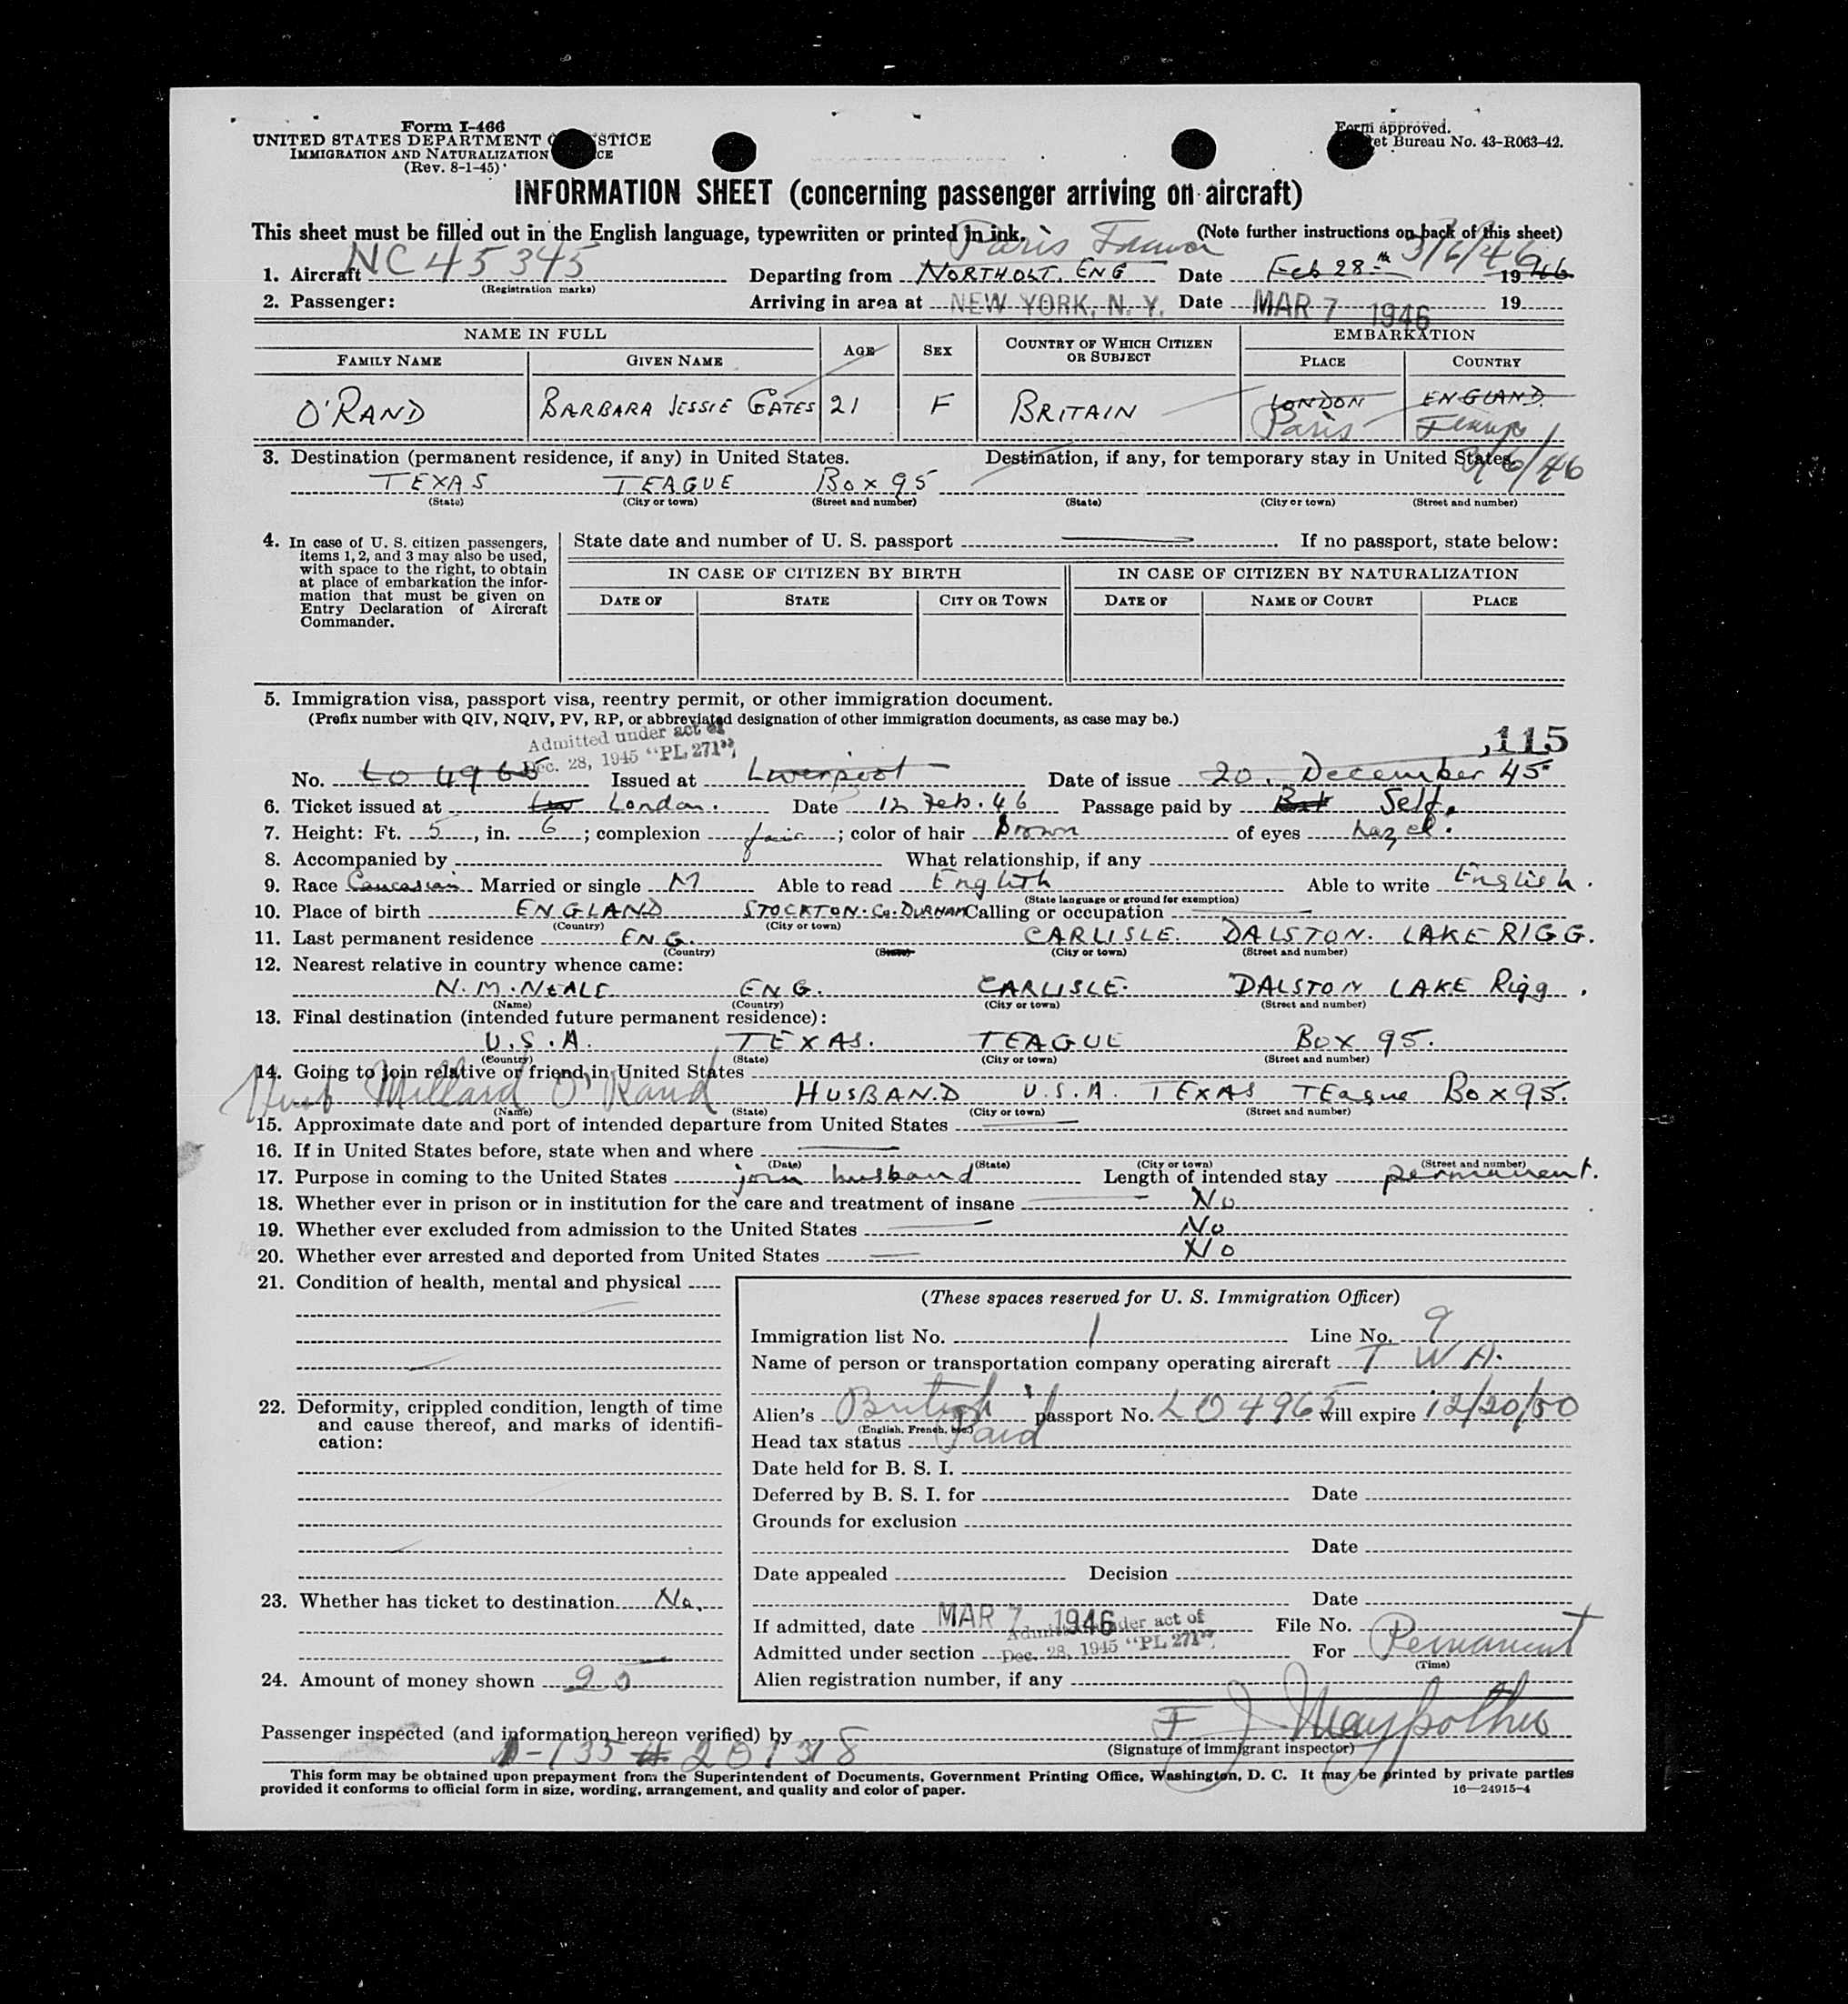 Form I-466
UNITED STATES DEPARTMENT STICE
IMMIGRATION AND NATURALIZATION CE
(Rev. 8-1-45)
Form approved.
et Bureau No. 43-R063-42.
INFORMATION SHEET (concerning passenger arriving on aircraft)
This sheet must be filled out in the English language, typewriitten or printed in ink. (Note further instructions on back of this sheet)
Paris 3/6/46
1. Aircraft NC 45345 Departing from NORTHOLT. ENG Date Feb 28th 1946
(Registration marks)
2. Passenger: Arriving in area at NEW YORK, N. Y. Date MAR 7 1946 19
NAME IN FULL AGE SEX COUNTRY OF WHICH CITIZEN OR SUBJECT EMBARKATION
FAMILY NAME GIVEN NAME PLACE COUNTRY
O'RAND BARBARA JESSIE GATES 21 F BRITAIN LONDON ENGLAND.
Paris France
3/6/46
3. Destination (permanent residence, if any) in United States. Destination, if any, for temporary stay in United States.
TEXAS TEAGUE BOX 95
(State) (City or town) (Street and number) (State) (City or town) (Street and number)
4. In case of U. S. citizen passengers,
items 1, 2, and 3 may also be used,
with space to the right, to obtain
at place of embarkation the infor-
mation that must be given on
Entry Declaration of Aircraft
Commander.
State date and number of U. S. passport If no passport, state below:
IN CASE OF CITIZEN BY BIRTH IN CASE OF CITIZEN BY NATURALIZATION
DATE OF STATE CITY OR TOWN DATE OF NAME OF COURT PLACE
5. Immigration visa, passport visa, reentry permit, or other immigration document.
(Prefix number with QIV, NQIV, PV, RP, or abbreviated designation of other immigration documents, as case may be.)
Admitted under act of
Dec. 28, 1945 "PL 271"
115
No. LO 4965 Issued at Liverpool Date of issue 20. December 45
6. Ticket issued at London. Date 12 Feb. 46 Passage paid by Self.
7. Height: Ft. 5, in. 6; complexion fair; color of hair Brown of eyes hazel.
8. Accompanied by What relationship, if any
9. Race Caucasian Married or single M Able to read English Able to write English.
(State language or ground for exemption)
10. Place of birth ENGLAND STOCKTON. Co. DURHAM Calling or occupation
(Country) (City or town)
11. Last permanent residence ENG. CARLISLE. DALSTON. LAKE RIGG.
(Country) (State) (City or town) (Street and number)
12. Nearest relative in country whence came:
N. M. NEALE ENG. CARLISLE. DALSTON LAKE Rigg.
(Name) (Country) (City or town) (Street and number)
13. Final destination (intended future permanent residence):
U.S.A. TEXAS. TEAGUE BOX 95.
(Country) (State) (City or town) (Street and number)
14. Going to join relative or friend in United States
Husb Millard O'Rand HUSBAND U.S.A. TEXAS TEague Box 95.
(Name) (State) (City or town) (Street and number)
15. Approximate date and port of intended departure from United States
16. If in United States before, state when and where
(Date) (State) (City or town) (Street and number)
17. Purpose in coming to the United States join husband Length of intended stay permanent.
18. Whether ever in prison or in institution for the care and treatment of insane No
19. Whether ever excluded from admission to the United States No
20. Whether ever arrested and deported from United States No
21. Condition of health, mental and physical
22. Deformity, crippled condition, length of time
and cause thereof, and marks of identifi-
cation:
23. Whether has ticket to destination No.
24. Amount of money shown
(These spaces reserved for U. S. Immigration Officer)
Immigration list No. 1 Line No. 9
Name of person or transportation company operating aircraft T W A.
Alien's British passport No. LO 4965 will expire 12/20/50
(English, French, etc.)
Head tax status Paid
Date held for B. S. I.
Deferred by B. S. I. for Date
Grounds for exclusion
Date
Date appealed Decision
Date
If admitted, date MAR 7 1946 File No.
Admitted under act of
Admitted under section Dec. 28, 1945 "PL 271" For Permanent
(Time)
Alien registration number, if any
Passenger inspected (and information hereon verified) by F J
(Signature of immigrant inspector)
This form may be obtained upon prepayment from the Superintendent of Documents, Government Printing Office, Washington, D. C. It may be printed by private parties
provided it conforms to official form in size, wording, arrangement, and quality and color of paper. 16—24915-4